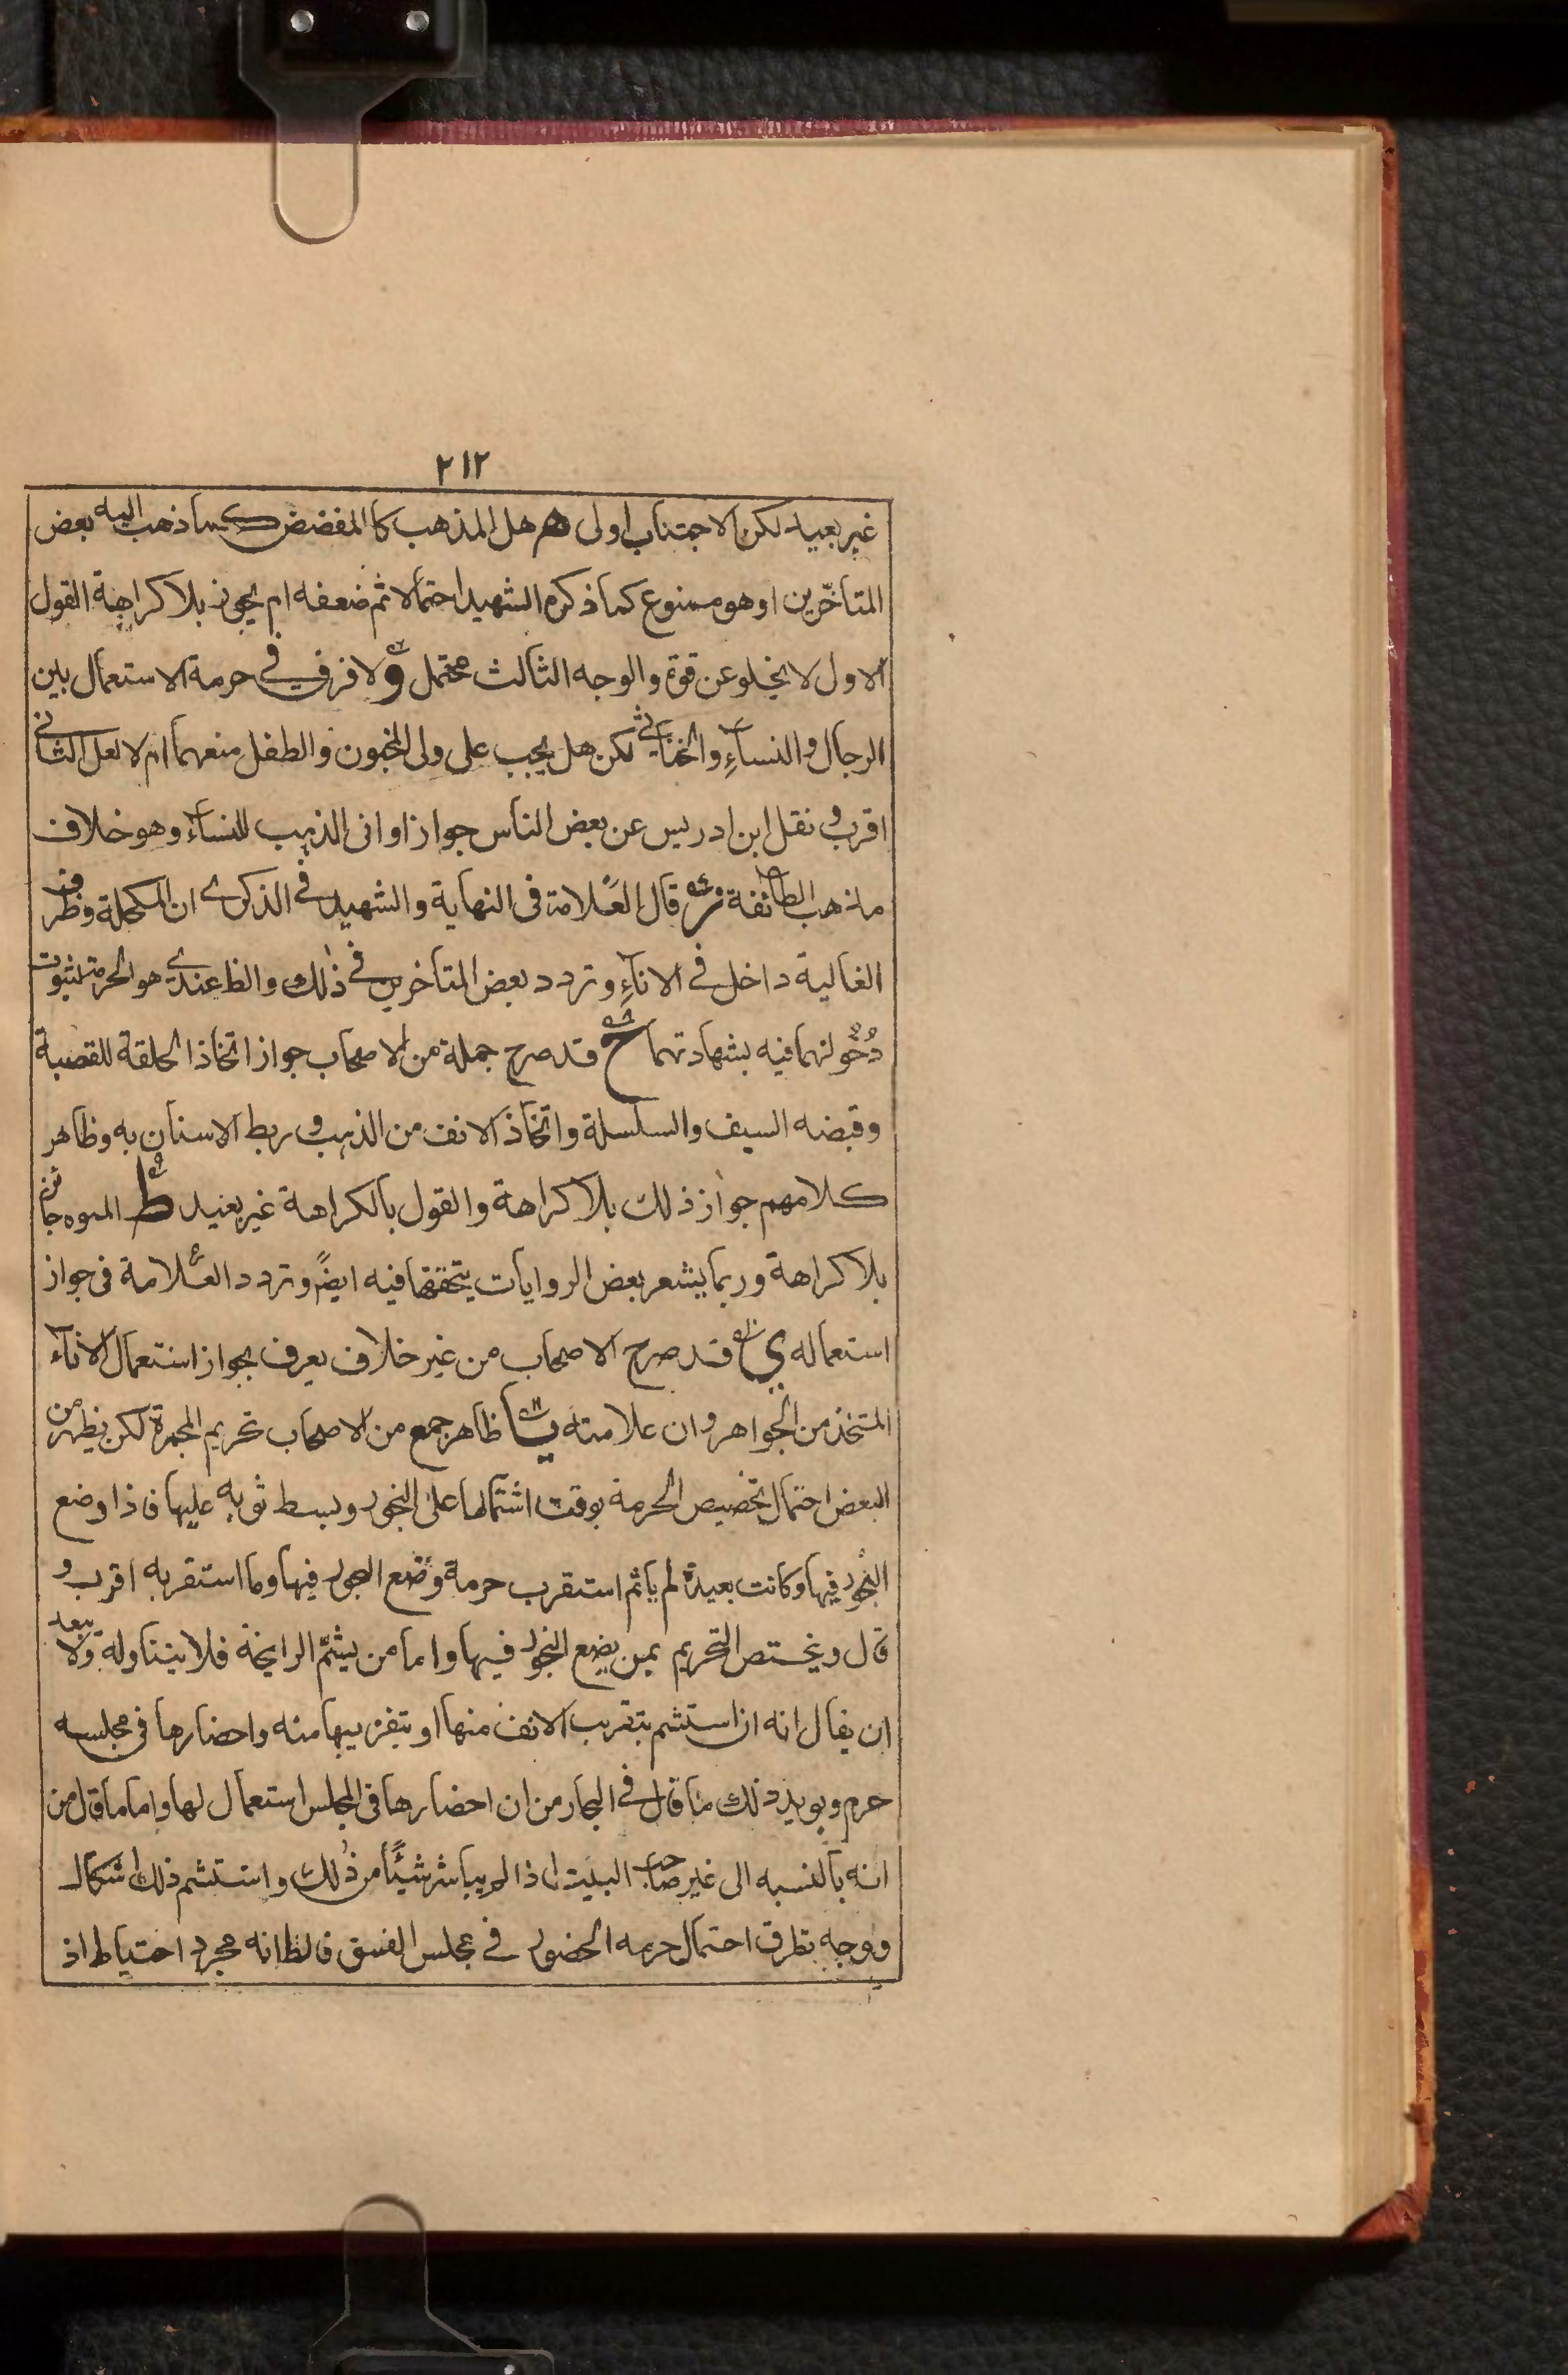 ٢١٢
غير بعيد لكن الاجتناب اولى هم هل المذهب كا المفضض كما ذهب اليه بعض
المتأخرين او هو ممنوع كما ذكره الشهيد احتمالا ثم ضعفه ام يجوز بلا كراهة القول
الاول لا يخلو عن قوة والوجه الثالث محتمل و لا فرق في حرمة الاستعمال بين
الرجال والنساء والخناثى لكن هل يجب على ولى المجنون والطفل منعهما ام لا لعل الثاني
اقرب و نقل ابن ادريس عن بعض الناس جواز اوانى الذهب للنساء وهو خلاف
مذهب الطائفة ز قال العلامة فى النهاية والشهيد في الذكرى ان المكحلة وظرف
الغالية داخل في الاناء وتردد بعض المتأخرين في ذلك والظ عندي هو الحرمة لثبوت
دخولهما فيه بشهادتهما ح قد صرح جملة من الاصحاب جواز اتخاذ الحلقة للقصبة
وقبضه السيف والسلسلة واتخاذ الانف من الذهب و ربط الاسنان به وظاهر
كلامهم جواز ذلك بلا كراهة والقول بالكراهة غير بعيد ط المموه جائز
بلا كراهة وربما يشعر بعض الروايات بتحققها فيه ايضً وتردد العلامة فى جواز
استعماله ي قد صرح الاصحاب من غير خلاف يعرف بجواز استعمال الاناء
المتخذ من الجواهر وان علا منه يا ظاهر جمع من الاصحاب تحريم المجمرة لكن يظهر من
البعض احتمال تخصيص الحرمة بوقت اشتمالها على البخور وبسط ثوبه عليها فاذا وضع
البخور فيها وكانت بعيدة لم ياثم استقرب حرمة وضع البخور فيها وما استقربه اقرب و
قال ويختص التحريم بمن يضع البخور فيها واما من يشتم الرايحة فلا يتناوله ولا يبعد
ان يقال انه ان استشم بتقريب الانف منها او بتقريبها منه واحضارها فى مجلسه
حرم ويويد ذلك ما قال في البحار من ان احضارها فى المجلس استعمال لها واما ما قال من
انه بالنسبه الى غير صاحب البيت اذا لم يباشر شيئًا من ذلك واستشم ذلك اشكال
ووجه بطرق احتمال حرمه الحضور في مجلس الفسق فالظ انه مجرد احتياط اذ